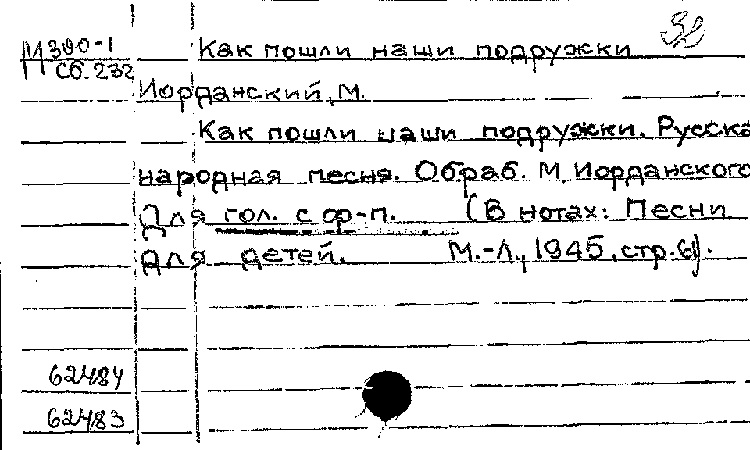 М390-1 Как пошли наши подружки
Сб.232
Иорданский, М.
Как пошли наши подружки. Русска
народная песня. Обраб. М. Иорданского
Для гол. с ф-п. (В нотах: Песни
для детей. М.-Л., 1945, стр. 6).
62484
62483